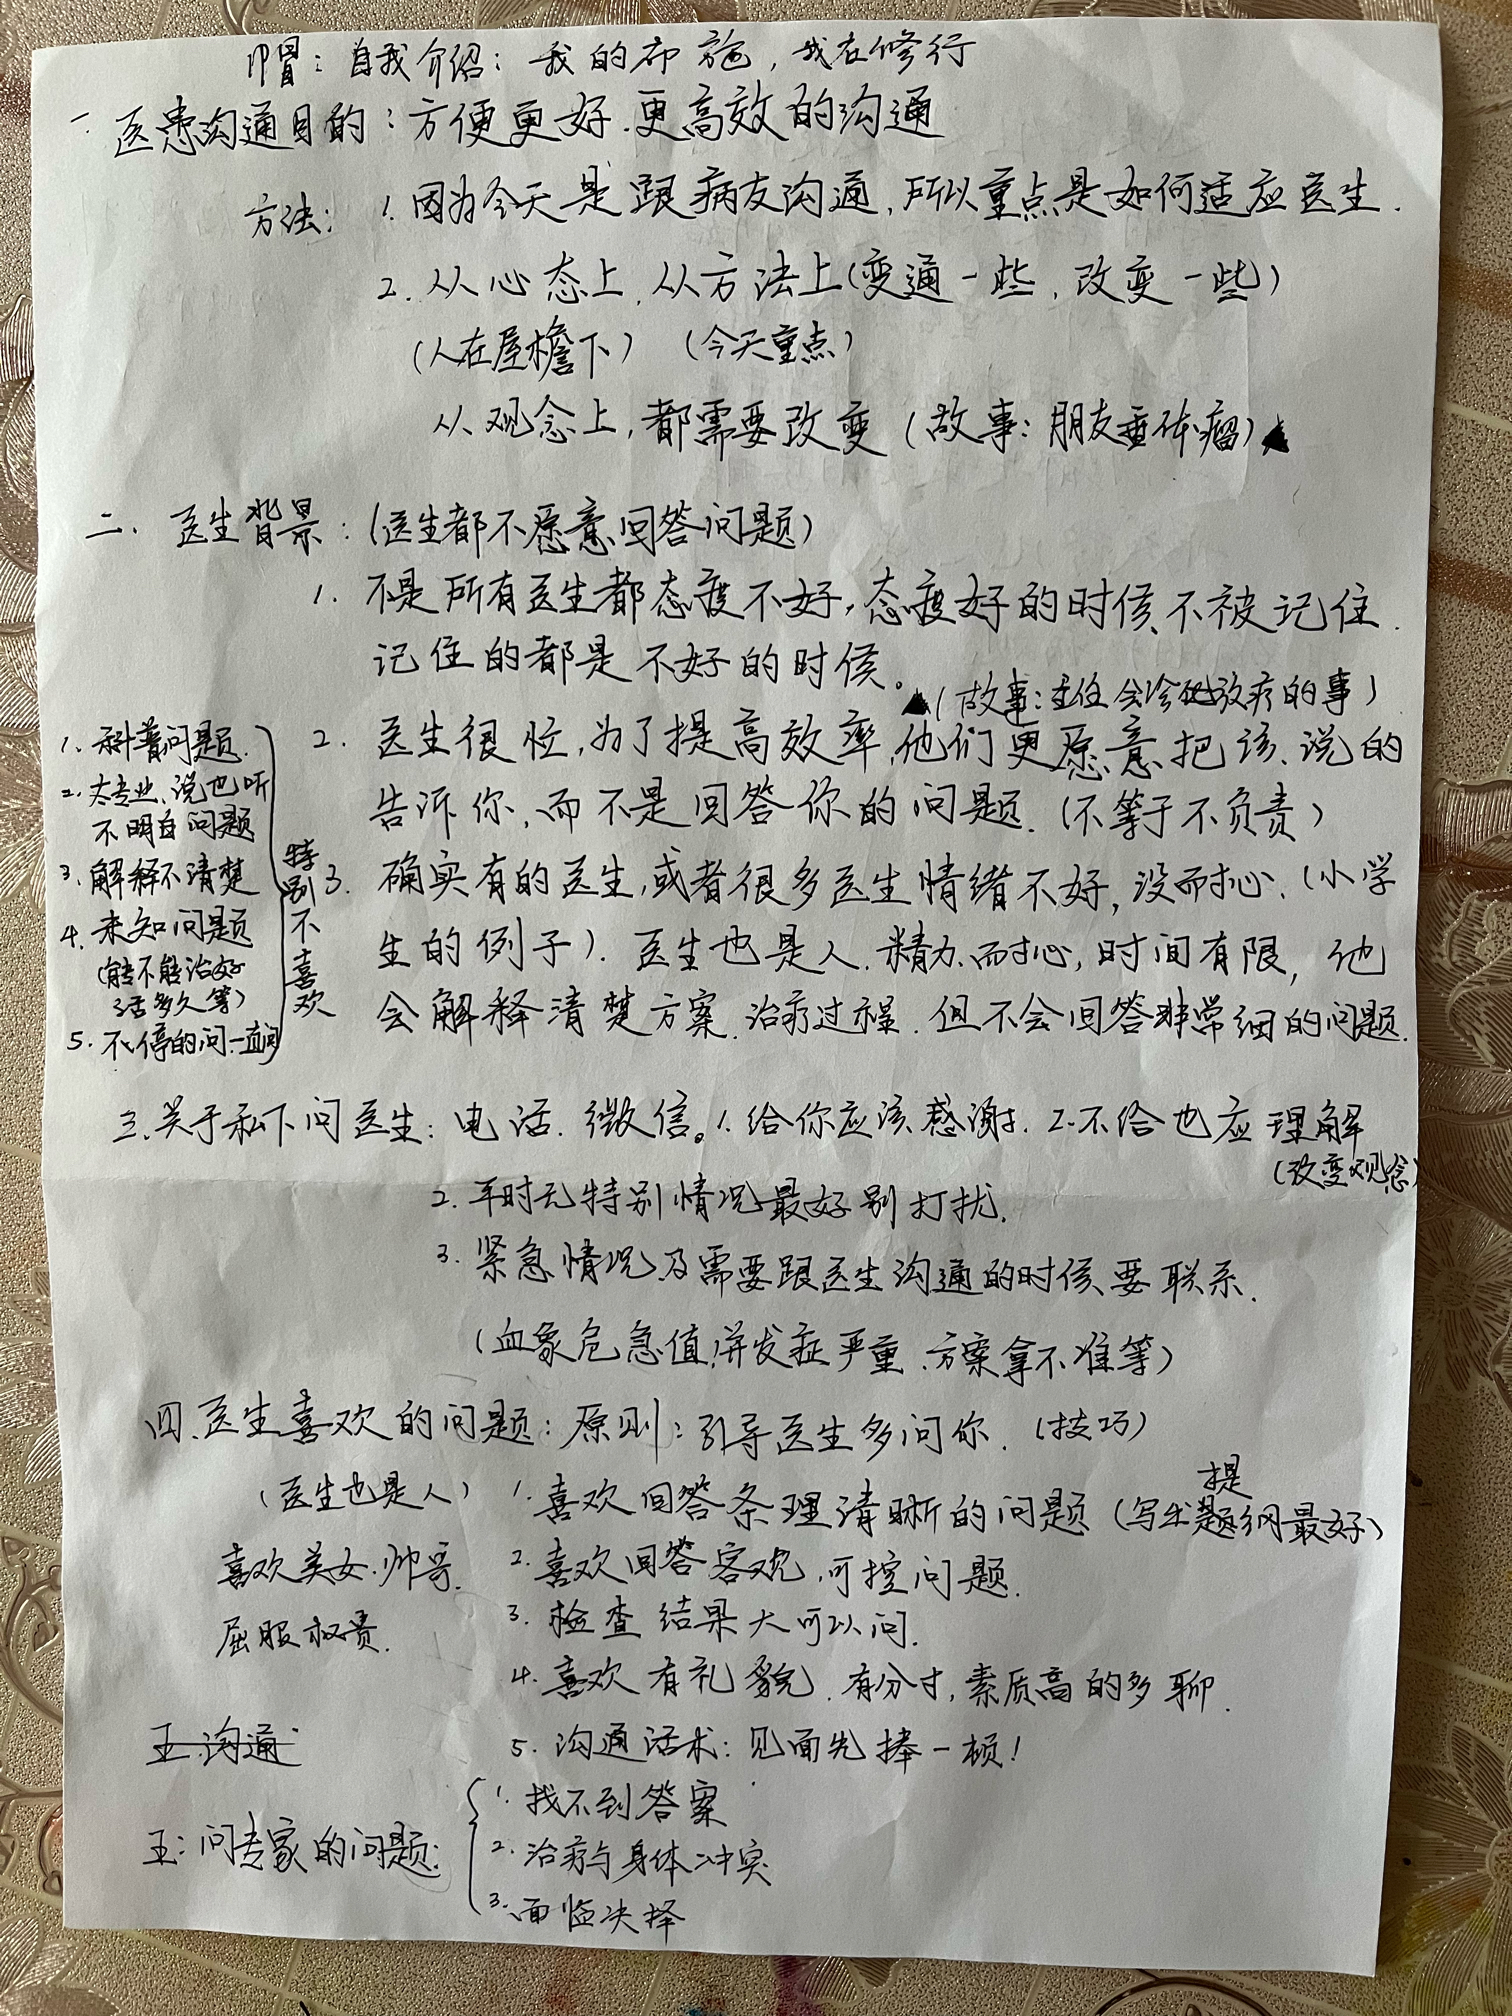 帽：自我介绍：我的布施，我在修行
一．医患沟通目的：方便更好．更高效的沟通
方法：1．因为今天是跟病友沟通，所以重点是如何适应医生．
2．从心态上，从方法上（变通一些，改变一些）
（人在屋檐下）（今天重点）
从观念上，都需要改变（故事：朋友垂体瘤）▲
二．医生背景：（医生都不愿意回答问题）
1．不是所有医生都态度不好，态度好的时候不被记住．
记住的都是不好的时候。
▲（故事：主任会诊放疗的事）
2．医生很忙，为了提高效率，他们更愿意把该说的
告诉你，而不是回答你的问题．（不等于不负责）
3．确实有的医生，或者很多医生情绪不好，没耐心．（小学
生的例子）．医生也是人．精力．耐心，时间有限，他
会解释清楚方案．治疗过程．但不会回答非常细的问题．
1．科普问题．
2．太专业，说也听
不明白问题
3．解释不清楚
4．未知问题
（能不能治好
活多久等）
5．不停的问一直问
特别不喜欢
三．关于私下问医生：电话．微信。1．给你应该感谢．2．不给也应理解
（改变观念）
2．平时无特别情况最好别打扰．
3．紧急情况及需要跟医生沟通的时候要联系．
（血象危急值，并发症严重．方案拿不准等）
四．医生喜欢的问题：原则：引导医生多问你．（技巧）
（医生也是人）
喜欢美女．帅哥．
屈服权贵．
提
1．喜欢回答条理清晰的问题（写出题纲最好）
2．喜欢回答客观，可控问题．
3．检查结果大可以问．
4．喜欢有礼貌．有分寸，素质高的多聊．
5．沟通话术：见面先捧一顿！
五．沟通
五：问专家的问题：
1．找不到答案
2．治疗与身体冲突
3．面临决择